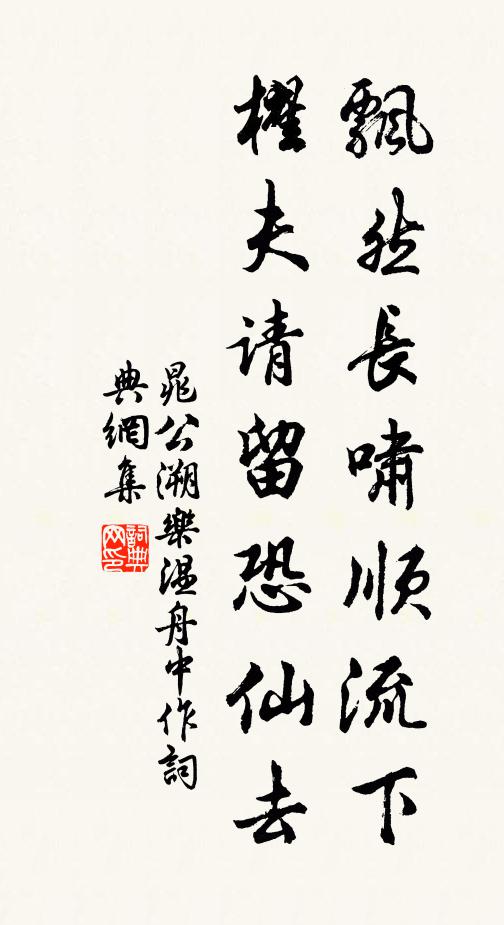 飄然長嘯順流下
櫂夫请留恐仙去
晁公溯樂溫舟中作詞
典網集
詞典
网印